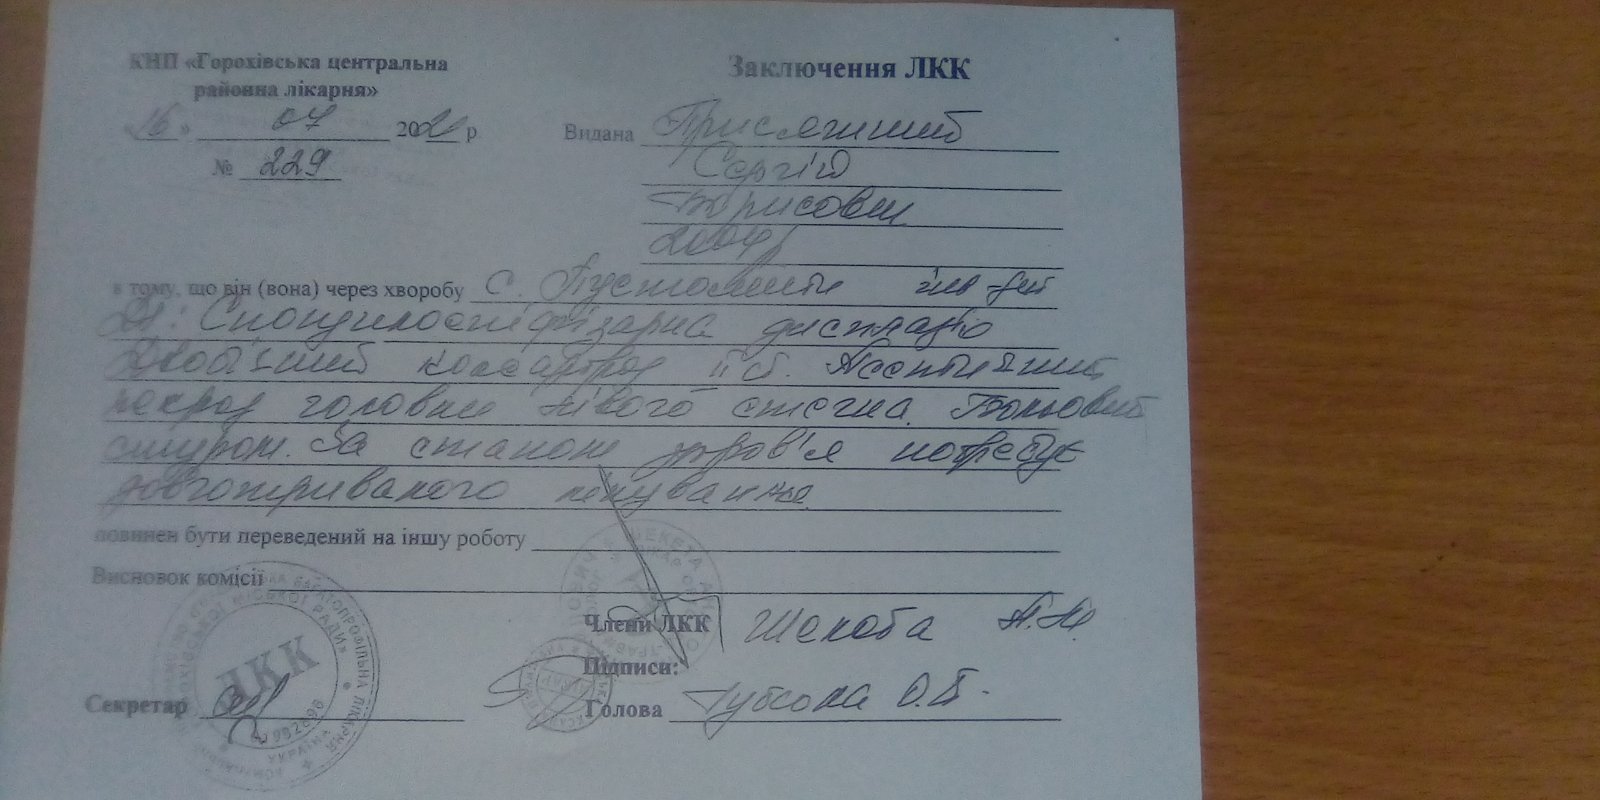 КНП «Горохівська центральна
районна лікарня»
«16» 07 2021 р
№ 229
Заключення ЛКК
Видана Присяжний
Сергій
Борисович
2004р
в тому, що він (вона) через хворобу с. Пустомити інв-дит
Дз: Спондилоепіфізарна дисплазія
Двобічний коксартроз II ст. Асептичний
некроз головки лівого стегна. Больовий
синдром. За станом здоров'я потребує
довготривалого лікування
повинен бути переведений на іншу роботу
Висновок комісії
Члени ЛКК
Підписи:
Секретар
Голова О.В.
ЛКК